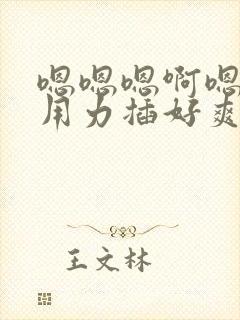 嗯嗯嗯啊嗯
用力插好爽
王文林